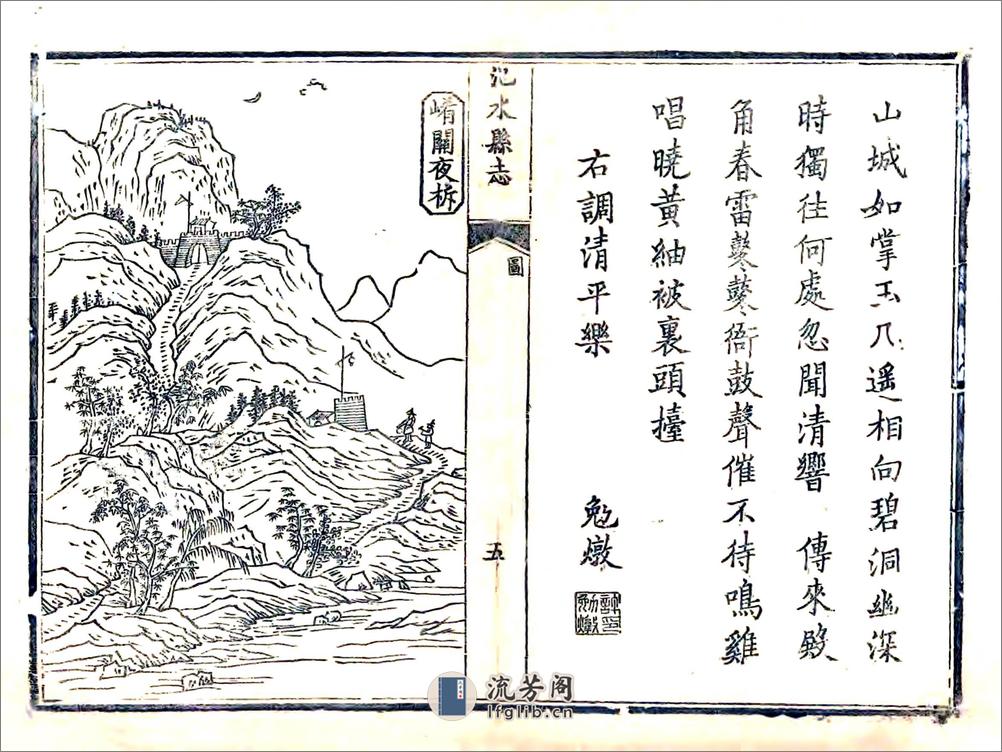 山城如掌玉几遥相向碧洞幽深
時獨往何處忽聞清響　傳來殷
角春雷鼕鼕衙鼓聲催不待鳴雞
唱曉黃紬被裏頭擡
右調清平樂
勉燉
汜水縣志
圖
五
崤關夜柝
流芳阁
lfglib.cn